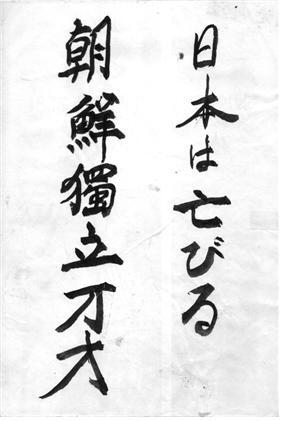 日本は亡びる
朝鮮獨立万才